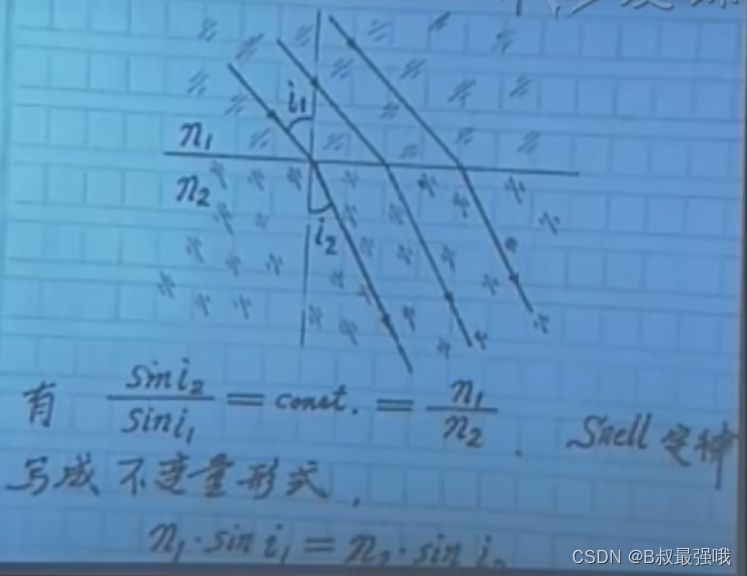 i₁
n₁
n₂
i₂
有 sin i₂ / sin i₁ = const. = n₁ / n₂ . Snell 定律
写成 不变量形式 .
n₁·sin i₁ = n₂·sin i₂
CSDN @B叔最强哦